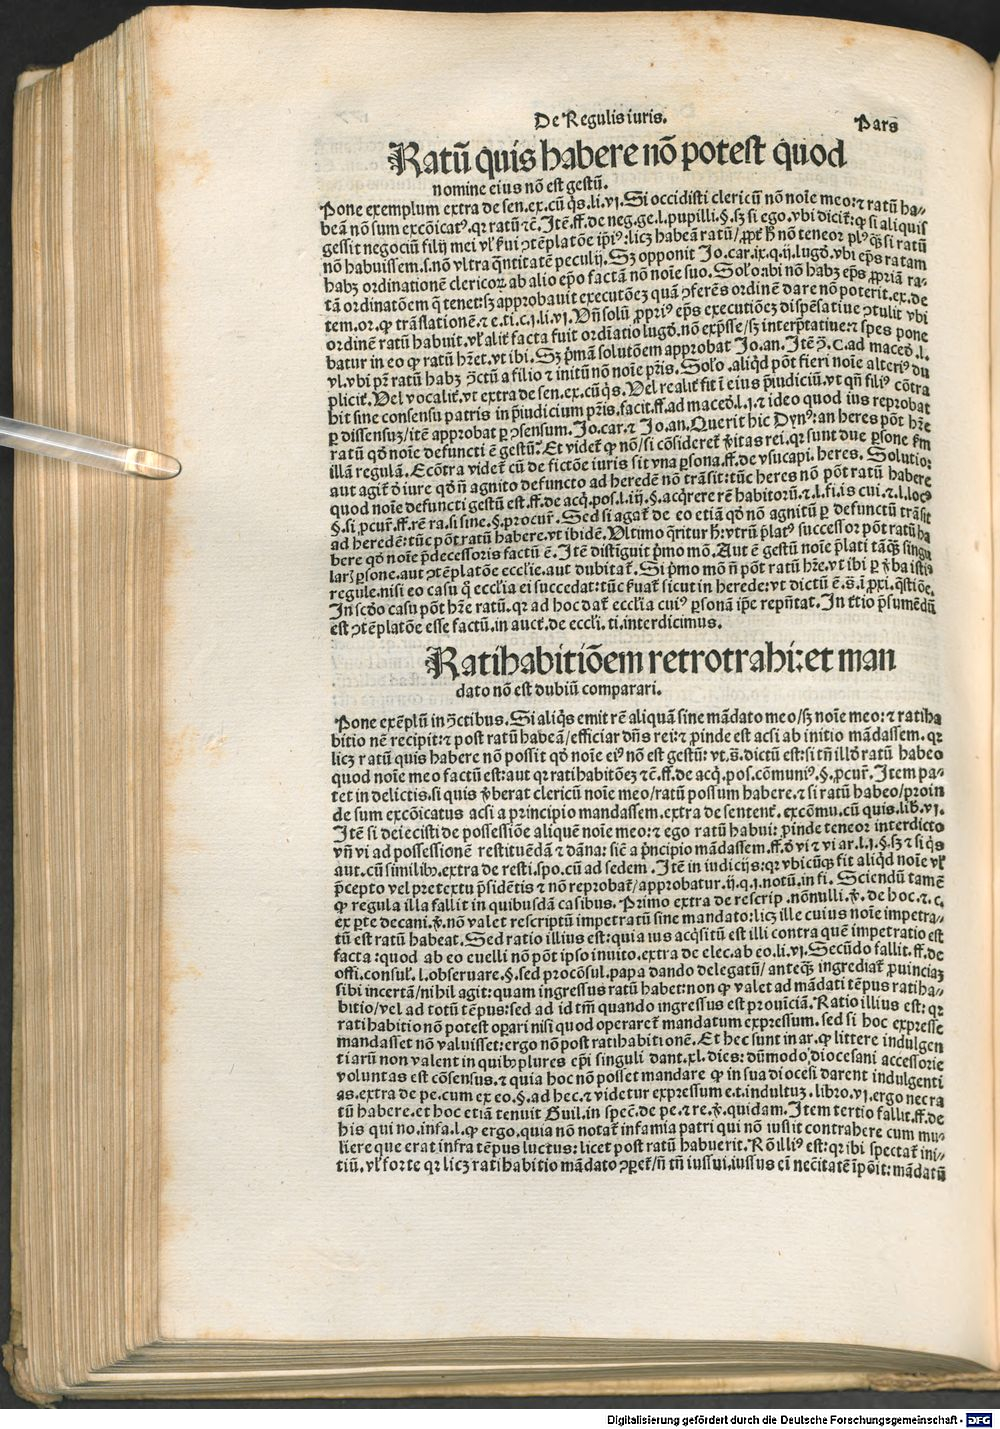 De Regulis iuris.
Pars
Ratū quis habere nō potest quod
nomine eius nō est gestū.
Pone exemplum extra de sen. ex. cū q̄s. li. vj. Si occidisti clericū nō noīe meo: ⁊ ratū ha⸗
beā nō sum excōicatꝰ. qꝛ ratū ⁊c̄. Itē. ff. de neg. ge. l. pupilli. §. sꝫ si ego. vbi dicit̄: ꝙ si aliquis
gessit negociū filij mei vl̓ ẜui ↄtēplatōe ip̄iꝰ: licꝫ habeā ratū/ ꝓpt̄ h̄ nō teneor plꝰ q̄ꝫ si ratū
nō habuissem. s. nō vltra q̄ntitatē peculij. Sꝫ opponit Jo. car. ix. q. ij. lugd̓. vbi ep̄s ratam
habꝫ ordinationē clericoꝝ ab alio ep̄o factā nō noīe suo. Solo: ibi nō habꝫ ep̄s ꝓpriā ra⸗
tā ordinatōem q̄ tenet: sꝫ approbauit executōeꝫ quā ↄferēs ordinē dare nō poterit. ex. de
tem. or. ꝙ trāslationē. ⁊ e. ti. c. j. li. vj. Vn̄ solū ꝓpriꝰ ep̄s executiōeꝫ dispēsatiue ↄtulit vbi
ordinē ratū habuit. vl̓ alit̓ facta fuit ordīatio lugd̓. nō exp̄sse/ sꝫ interp̄tatiue: ⁊ spes pone
batur in eo ꝙ ratū hr̄et. vt ibi. Sꝫ p̄mā solutōem approbat Jo. an. Itē ꝯ̄. C. ad maced̓. l.
vl. vbi pr̄ ratū habꝫ ꝯ̄ctū a filio ⁊ initū nō noīe pr̄is. Solo. aliq̄d pōt fieri noīe alteriꝰ du
plicit̓. Vel vocalit̓. vt extra de sen. ex. cū q̄s. Vel realit̓ fit ī eius p̄iudiciū. vt qn̄ filiꝰ cōtra
hit sine consensu patris in p̄iudicium pr̄is. facit. ff. ad maced̓. l. j. ⁊ ideo quod ius reprobat
ꝑ dissensuꝫ/ itē approbat ꝑ ↄsensum. Jo. car. ⁊ Jo. an. Querit hic Dynꝰ: an heres pōt hr̄e
ratū qd̓ noīe defuncti ē gestū. Et videt̄ ꝙ nō/ si cōsideret̄ v̓itas rei. qꝛ sunt due ꝑsone ẜm
illā regulā. Ecōtra videt̄ cū de fictōe iuris sit vna ꝑsona. ff. de vsucapi. heres. Solutio:
aut agit̄ d̓ iure qd̓ n̄ agnito defuncto ad heredē nō trāsit: tūc heres nō pōt ratū habere
quod noīe defuncti gestū est. ff. de acq̄. pos. l. iij. §. acq̄rere rē habitoꝝ. ⁊ l. fi. is cui. ⁊ l. locꝰ
§. si ꝓcur̄. ff. rē ra. si sine. §. ꝓcur̄. Sed si agat̄ de eo etiā qd̓ nō agnitū ꝑ defunctū trāsit
ad heredē: tūc pōt ratū habere. vt ibidē. Vltimo q̄ritur h̄: vtrū p̄latꝰ successor pōt ratū ha
bere qd̓ noīe p̄decessoris factū ē. Itē distīguit p̄mo mō. Aut ē gestū noīe p̄lati tāq̄ꝫ singu
larꝭ ꝑsone. aut ↄtēplatōe eccl̄ie. aut dubitat̄. Si p̄mo mō n̄ pōt ratū hr̄e. vt ibi ꝑ v̓ba istiꝰ
regule. nisi eo casu q̄ eccl̄ia ei succedat: tūc ẜuat̄ sicut in herede: vt dictū ē. s̄. ī ꝓxi. q̄stiōe.
In scd̓o casu pōt hr̄e ratū. qꝛ ad hoc dat̄ eccl̄ia cuiꝰ ꝑsonā ip̄e repn̄tat. In t̓tio p̄sumēdū
est ↄtēplatōe esse factū. in auct̄. de eccli. ti. interdicimus.
Ratihabitiōem retrotrahi: et man
dato nō est dubiū comparari.
Pone exēplū in ꝯ̄ctibus. Si aliq̄s emit rē aliquā sine mādato meo/ sꝫ noīe meo: ⁊ ratiha
bitio nē recipit: ⁊ post ratū habeā/ efficiar dn̄s rei: ⁊ ꝓinde est acsi ab initio mādassem. qꝛ
licꝫ ratū quis habere nō possit qd̓ noīe eiꝰ nō est gestū: vt. s̄. dictū est: si tn̄ illd̓ ratū habeo
quod noīe meo factū est: aut qꝛ ratihabitōeꝫ ⁊c̄. ff. de acq̄. pos. cōmuniꝰ. §. ꝓcur̄. Item pa⸗
tet in delictis. si quis v̓berat clericū noīe meo/ ratū possum habere. ⁊ si ratū habeo/ proin
de sum excōicatus acsi a principio mandassem. extra de sentent̄. excōmu. cū quis. lib. vj.
Itē si deiecisti de possessiōe aliquē noīe meo: ⁊ ego ratū habui: ꝓinde teneor interdicto
vn̄ vi ad possessionē restituēdā ⁊ dāna: sic̄ a p̄ncipio mādassem. ff. d̓ vi ⁊ vi ar. l. j. §. sꝫ ⁊ si q̄s
aut. cū similibꝫ. extra de resti. spo. cū ad sedem. Itē in iudicijs: qꝛ vbicūqꝫ fit aliq̄d noīe vl̓
p̄cepto vel pretextu p̄sidētis ⁊ nō reprobat̄/ approbatur. ij. q. j. notū. in fi. Sciendū tamē
ꝙ regula illa fallit in quibusdā casibus. Primo extra de rescrip. nōnulli. v̓. de hoc. ⁊. c.
ex ꝑte decani. v̓. nō valet rescriptū impetratū sine mandato: licꝫ ille cuius noīe impetra⸗
tū est ratū habeat. Sed ratio illius est: quia ius acq̄sitū est illi contra quē impetratio est
facta: quod ab eo euelli nō pōt ipso inuito. extra de elec. ab eo. li. vj. Secūdo fallit. ff. de
offi. consul̓. l. obseruare. §. sed procōsul. papa dando delegatū/ anteq̄ꝫ ingrediat̄ ꝓuinciaꝫ
sibi incertā/ nihil agit: quam ingressus ratū habet: non ꝙ valet ad mādati tēpus ratiha⸗
bitio/ vel ad totū tēpus: sed ad id tm̄ quando ingressus est prouīciā. Ratio illius est: qꝛ
ratihabitio nō potest oꝑari nisi quod operaret̄ mandatum expressum. sed si hoc expresse
mandasset nō valuisset: ergo nō post ratihabitionē. Et hec sunt in ar. ꝙ littere indulgen
tiarū non valent in quibꝫ plures ep̄i singuli dant. xl. dies: dūmodo diocesani accessorie
voluntas est cōsensus. ⁊ quia hoc nō posset mandare ꝙ in sua diocesi darent indulgenti
as. extra de pe. cum ex eo. §. ad hec. ⁊ videtur expressum e. t. indultuꝫ. libro. vj. ergo nec ra
tū habere. et hoc etiā tenuit Guil. in spec̄. de pe. ⁊ re. v̓. quidam. Item tertio fallit. ff. de
his qui no. infa. l. ꝙ ergo. quia nō notat̄ infamia patri qui nō iussit contrahere cum mu⸗
liere que erat infra tēpus luctus: licet post ratū habuerit. Rō illiꝰ est: qꝛ ibi spectat̄ ini⸗
tiū. vl̓ forte qꝛ licꝫ ratihabitio mādato ↄꝑet̄/ n̄ tn̄ iussui. iussus eī nec̄itatē īpōit: mādatū
Digitalisierung gefördert durch die Deutsche Forschungsgemeinschaft - DFG